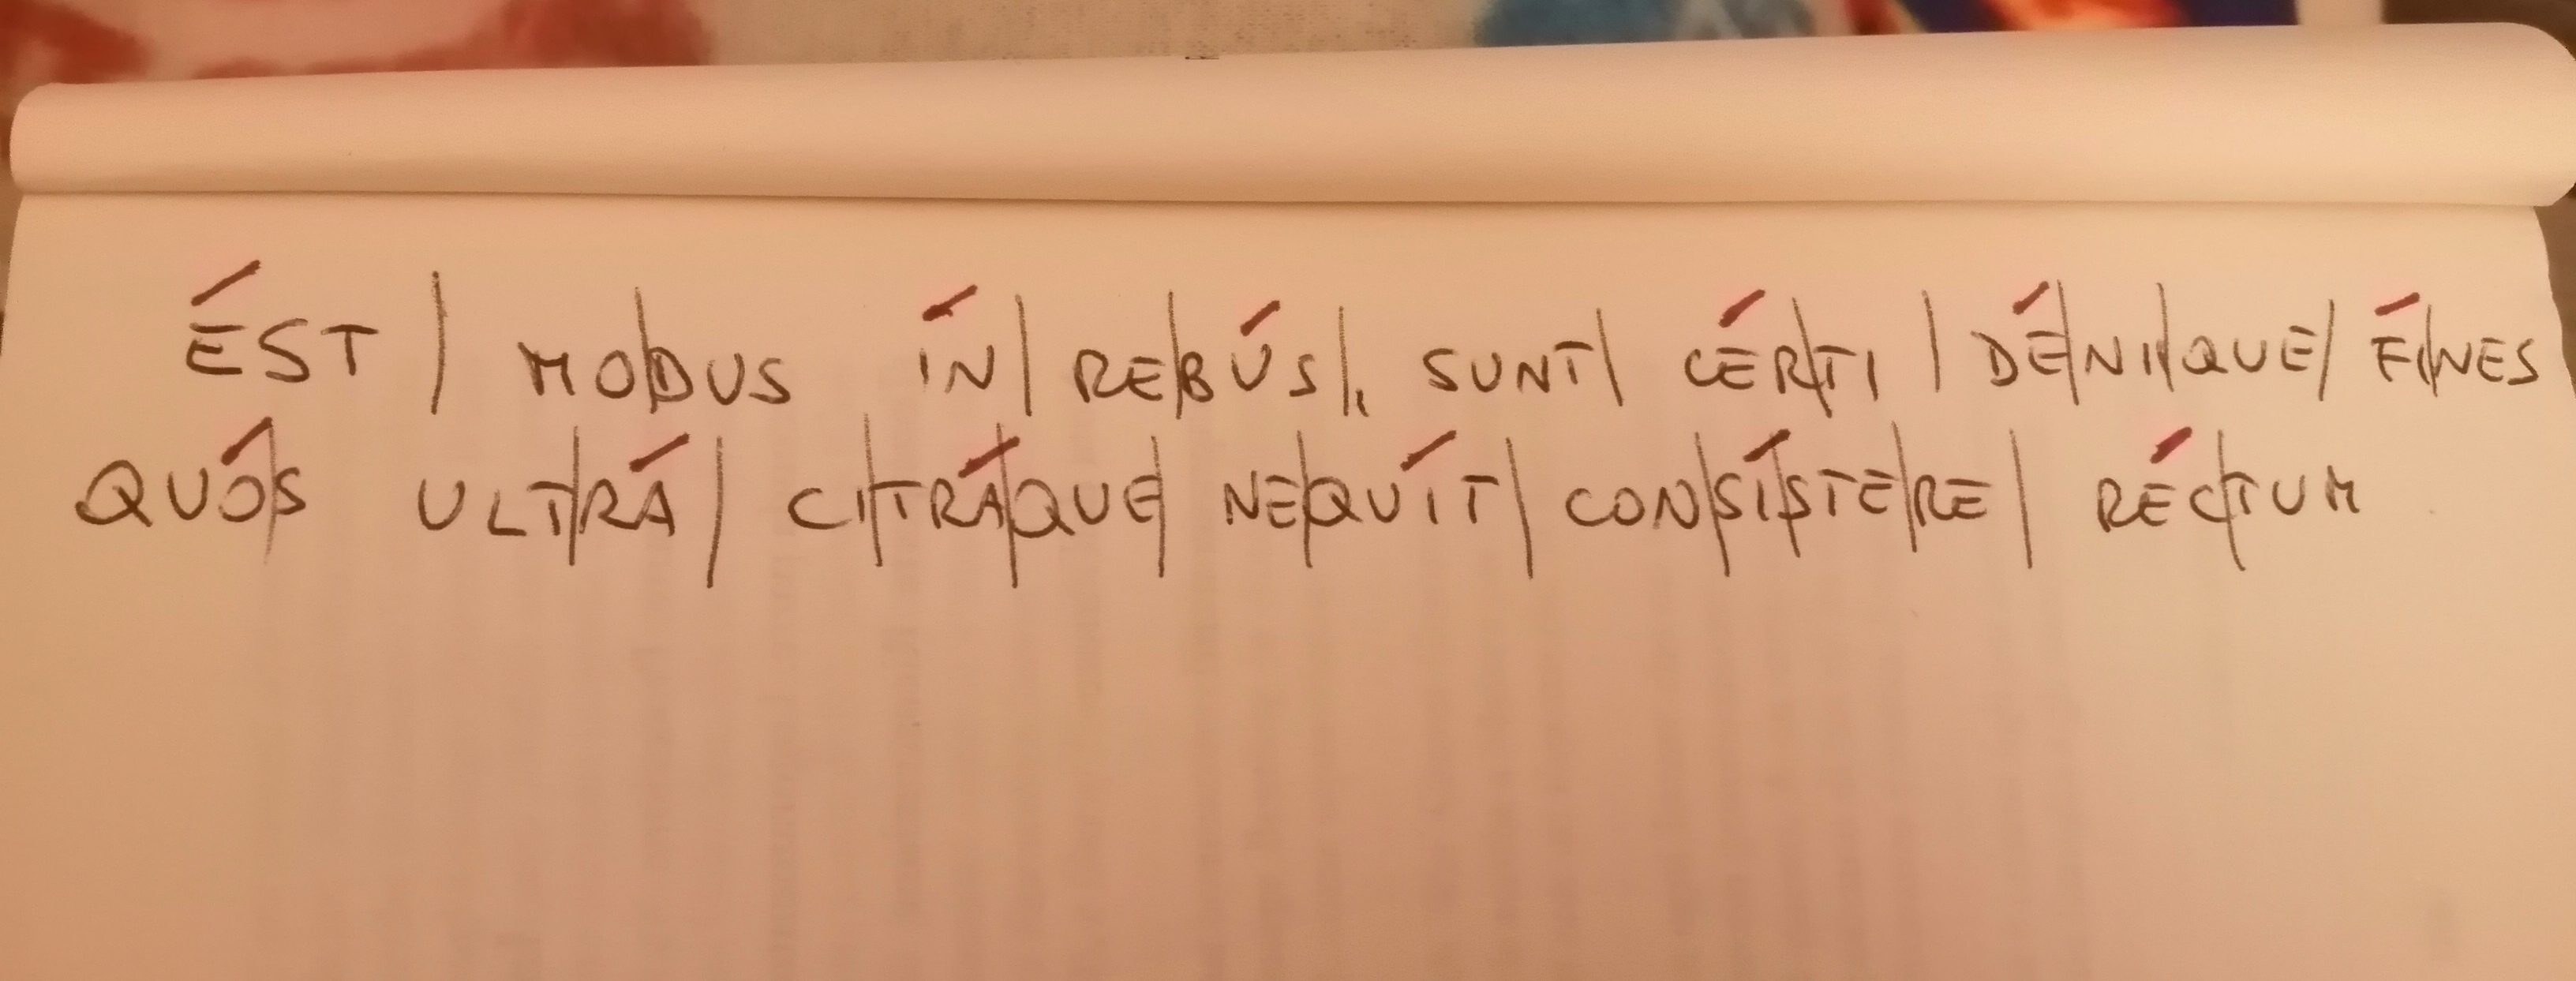 ÉST / MO/DUS ÍN / RE/BÚS /, SUNT / CÉR/TI / DÉ/NI/QUE / FÍ/NES
QUÓ/S ULT/RÁ / CI/TRÁ/QUE / NE/QUÍT / CON/SÍS/TE/RE / RÉC/TUM